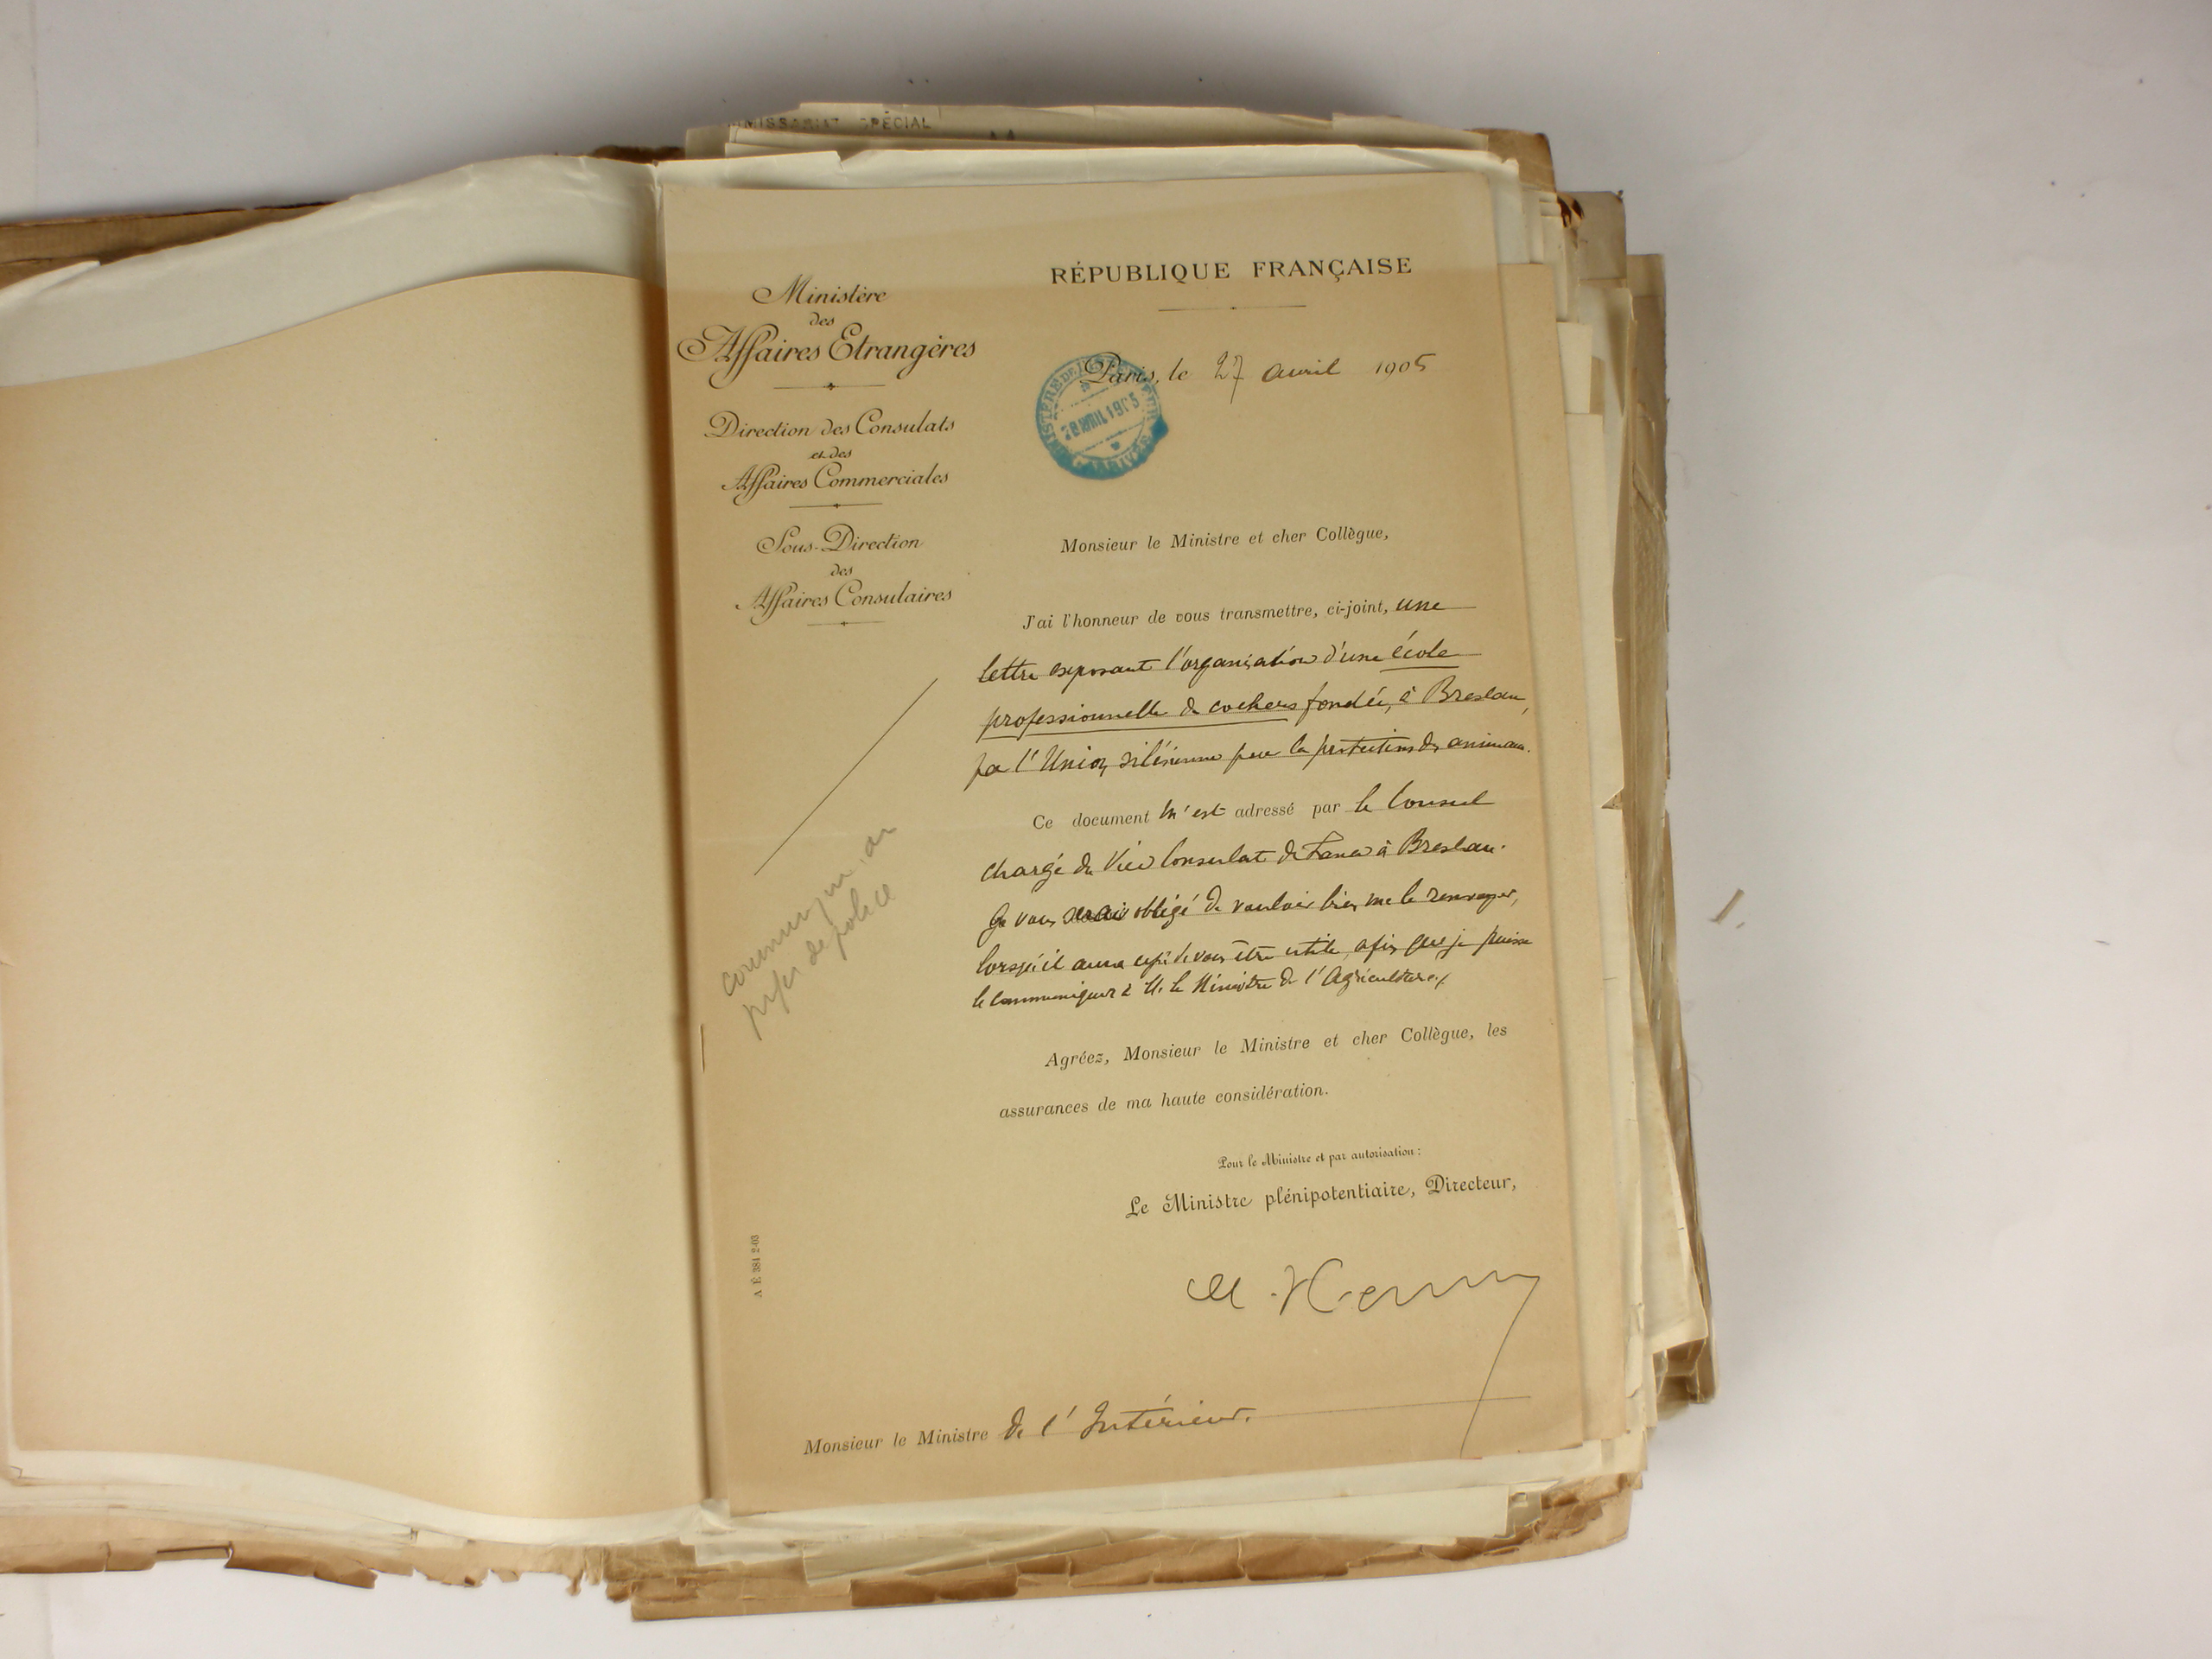 MMISSARIAT SPÉCIAL
RÉPUBLIQUE FRANÇAISE
Ministère
des
Affaires Etrangères
Direction des Consulats
et des
Affaires Commerciales
Sous-Direction
des
Affaires Consulaires
Paris, le 27 avril 1905
MINISTÈRE DE L'INTÉRIEUR
28 AVRIL 1905
ARRIVÉE
Monsieur le Ministre et cher Collègue,
J'ai l'honneur de vous transmettre, ci-joint, une
lettre exposant l'organisation d'une école
professionnelle de cochers fondée, à Breslau,
par l'Union silésienne pour la protection des animaux.
Ce document m'est adressé par le Consul
chargé du Vice Consulat de France à Breslau.
Je vous serais obligé de vouloir bien me le renvoyer,
lorsqu'il aura cessé de vous être utile, afin que je puisse
le communiquer à M. le Ministre de l'Agriculture./.
communiquer au
préfet de police
Agréez, Monsieur le Ministre et cher Collègue, les
assurances de ma haute considération.
Pour le Ministre et par autorisation :
Le Ministre plénipotentiaire, Directeur,
A É 384 2-03
Monsieur le Ministre de l'Intérieur.